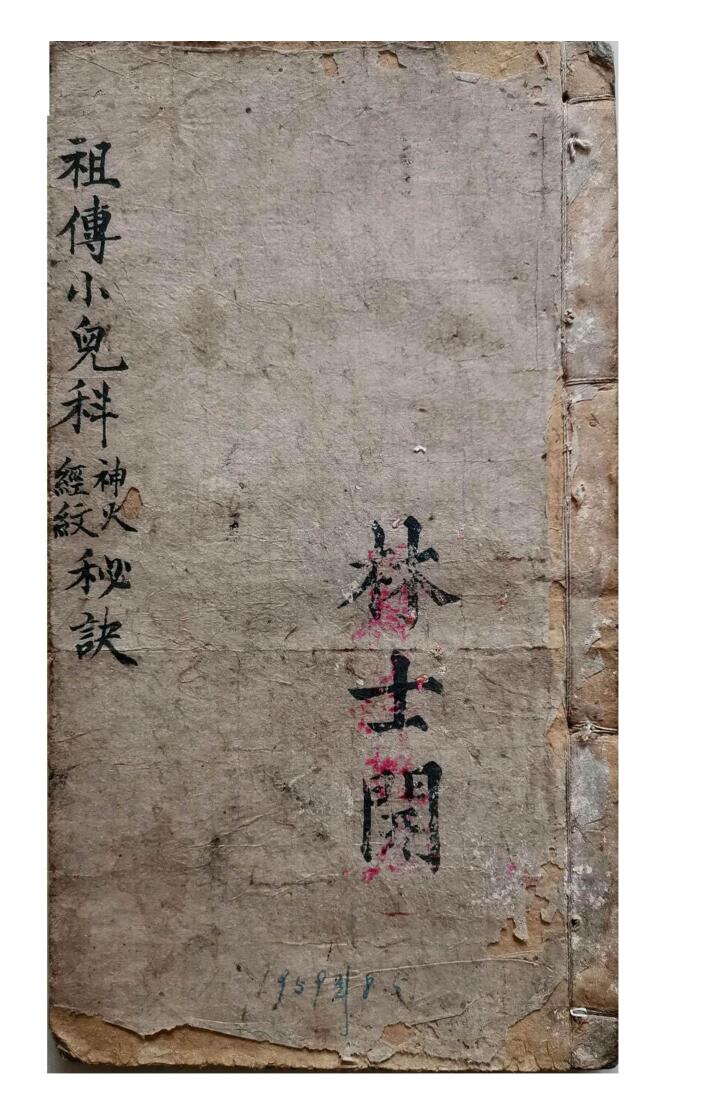 祖傳小兒科神火經紋秘訣
林士開
1959年8.5